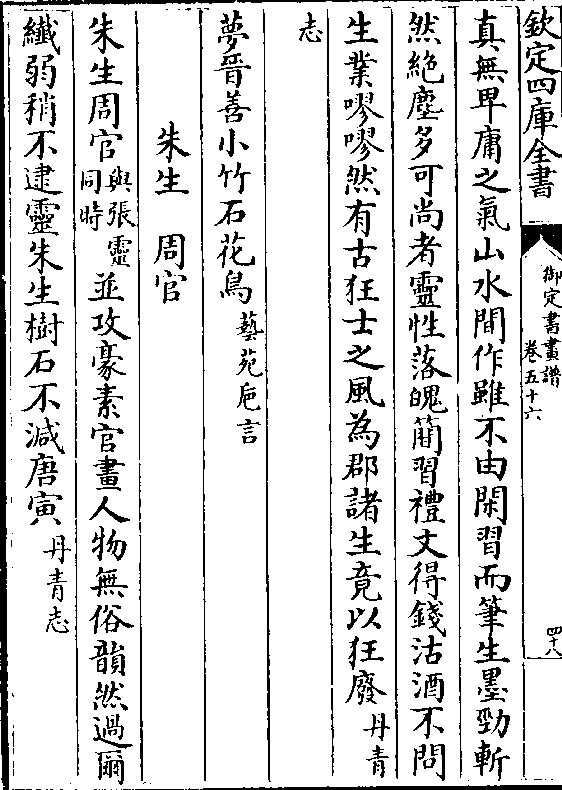 欽定四庫全書
御定書畫譜
卷五十六
四十八
真無卑庸之氣山水間作雖不由閑習而筆生墨勁斬
然絶塵多可尚者靈性落魄簡習禮文得錢沽酒不問
生業嘐嘐然有古狂士之風為郡諸生竟以狂廢丹青
志
夢晉善小竹石花鳥藝苑巵言
朱生 周官
朱生周官與張靈同時並攻豪素官畫人物無俗韻然過爾
纎弱稍不逮靈朱生樹石不減唐寅丹青志